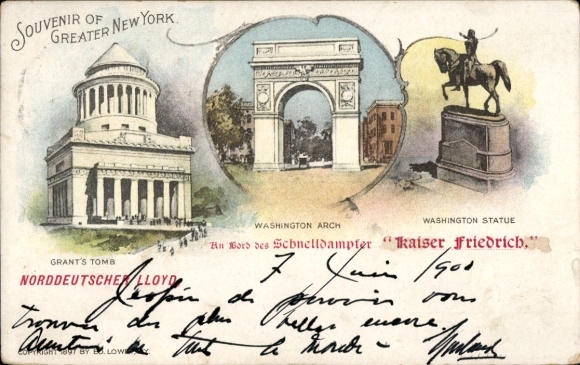 SOUVENIR OF
GREATER NEW YORK.
GRANT'S TOMB
WASHINGTON ARCH
WASHINGTON STATUE
An Bord des Schnelldampfer "Kaiser Friedrich."
NORDDEUTSCHER LLOYD
7 Juin 1900
J'espère de pouvoir vous
trouver des plus belles encore
de tout le monde
COPYRIGHT 1897 BY ED. LOWEY, N.Y.